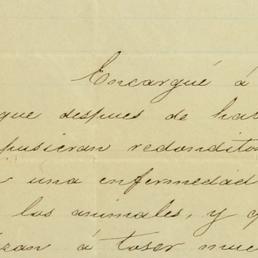 Encargué á
que despues de ha
pusieran redondito
una enfermedad
los animales, y q
zan á toser mue